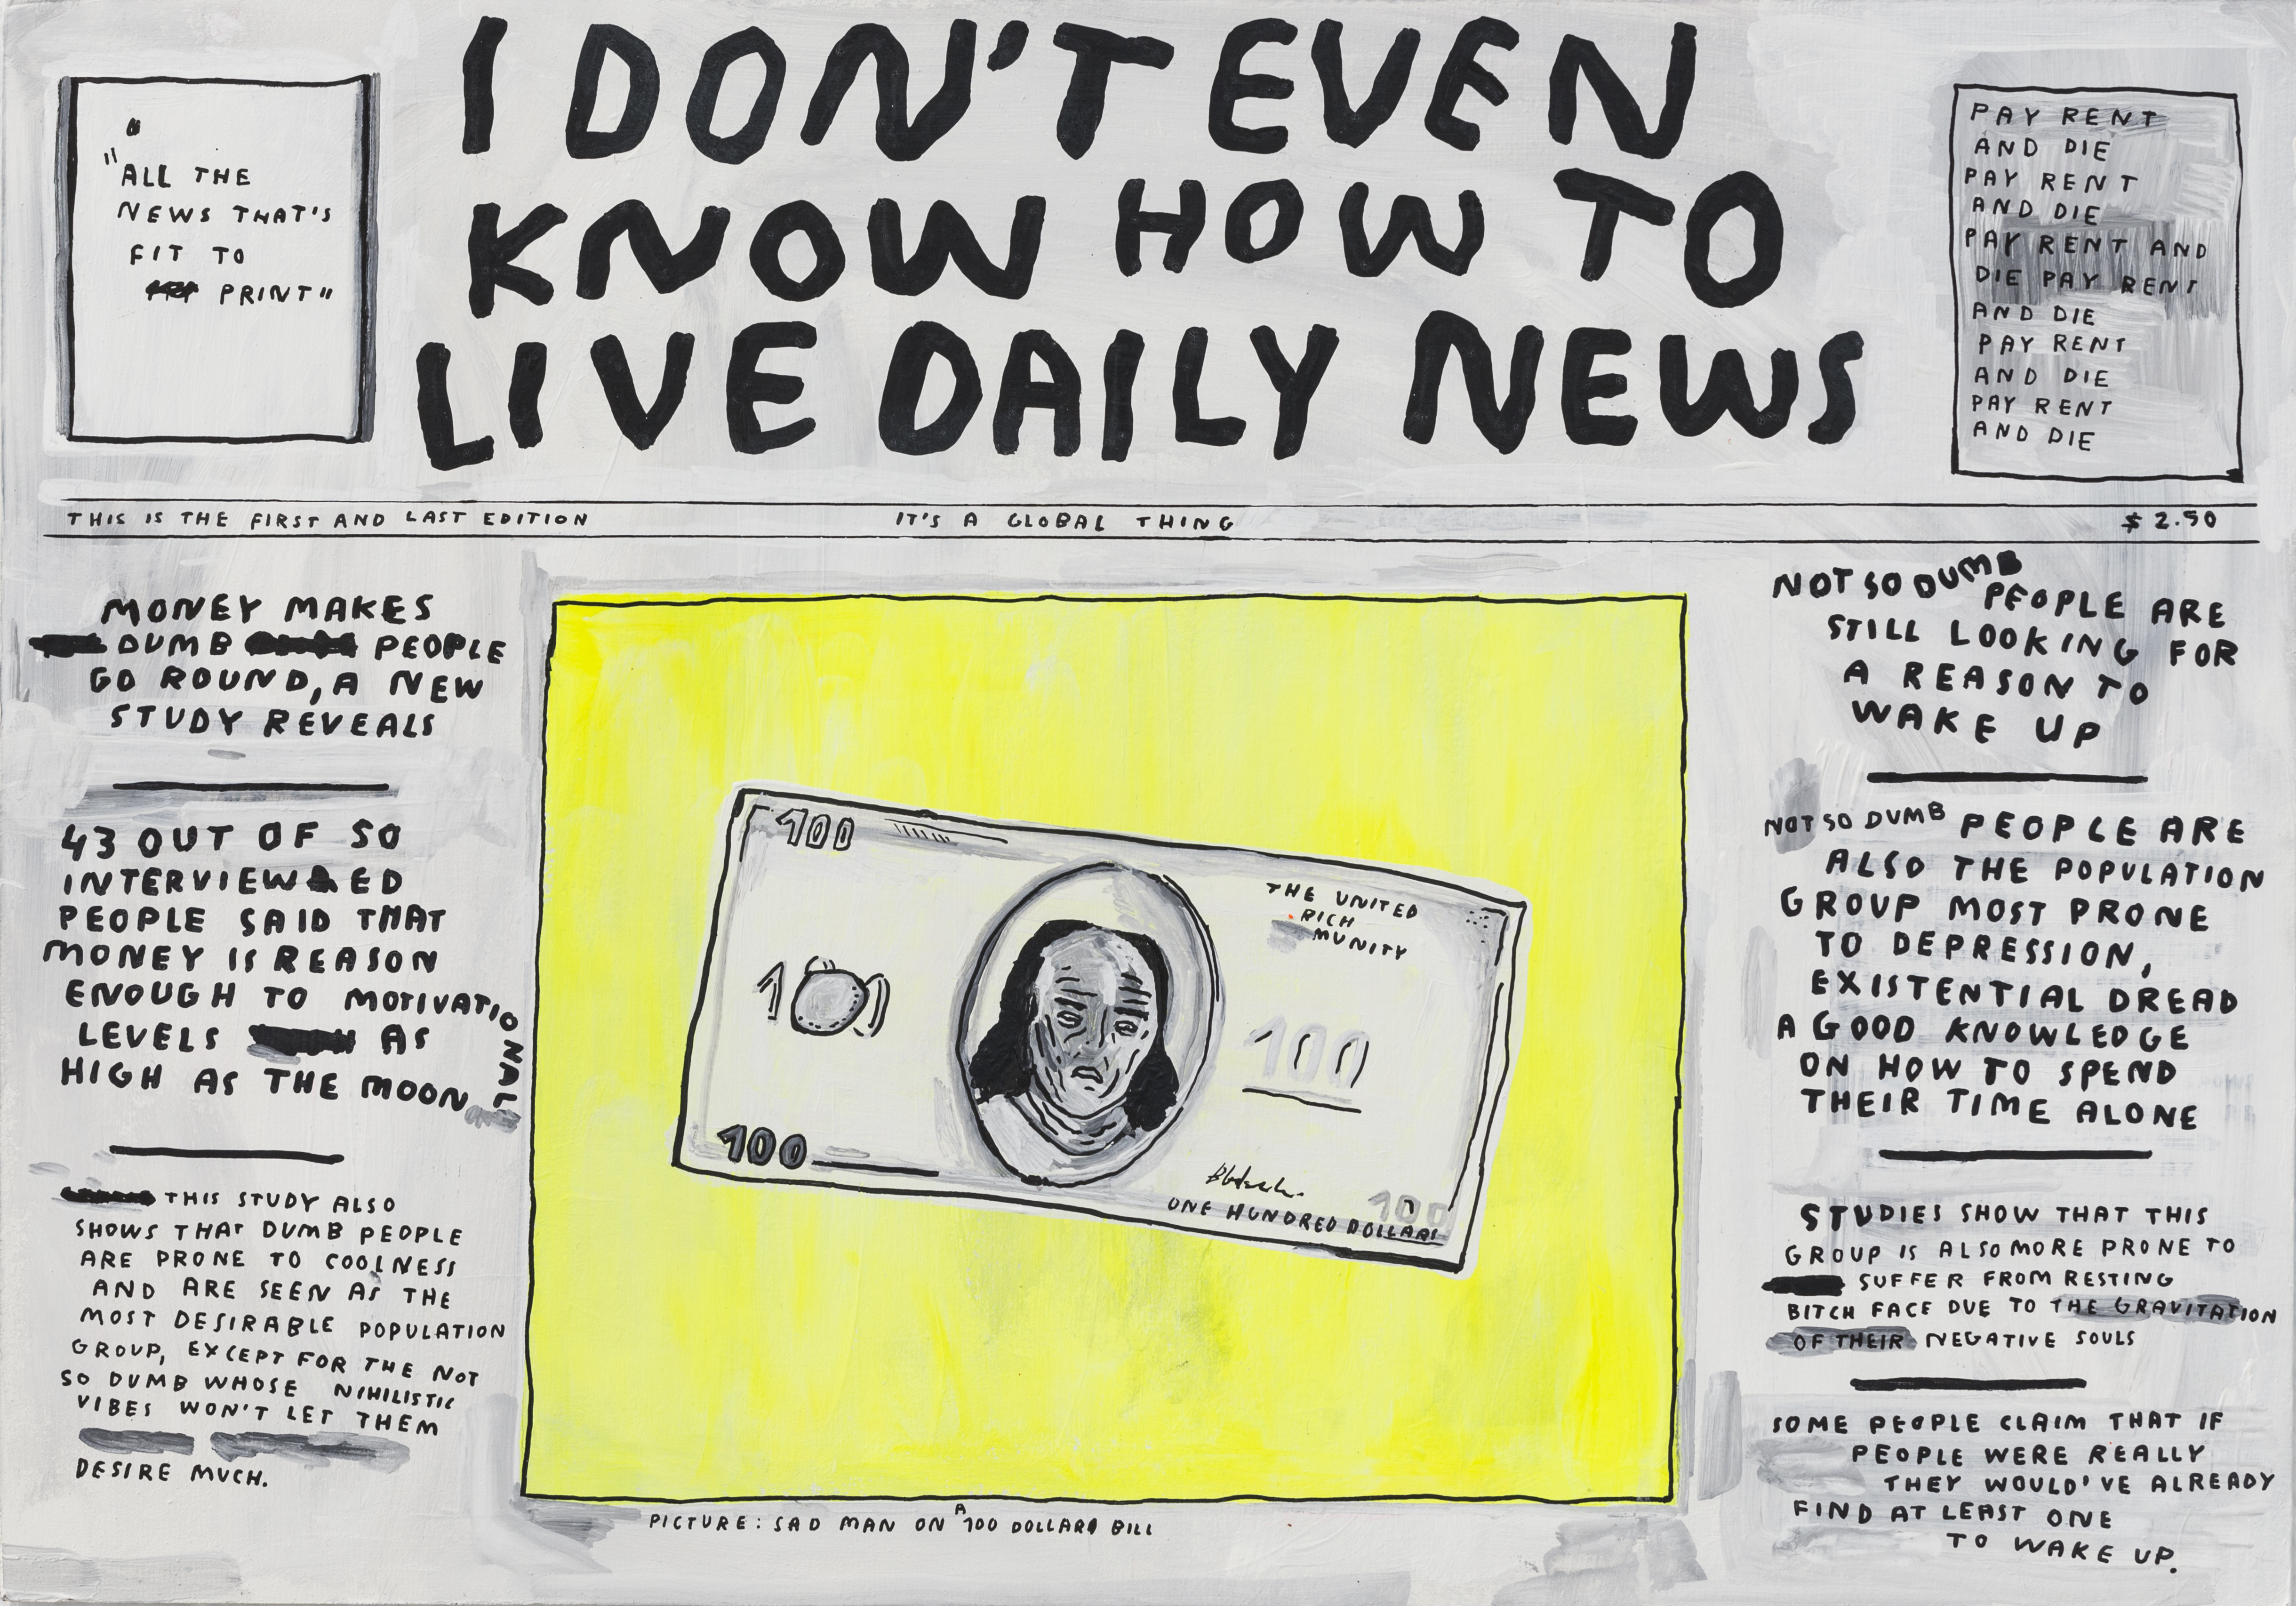 I DON'T EVEN
KNOW HOW TO
LIVE DAILY NEWS
"ALL THE
NEWS THAT'S
FIT TO
PRINT"
PAY RENT
AND DIE
PAY RENT
AND DIE
PAY RENT AND
DIE PAY RENT
AND DIE
PAY RENT
AND DIE
PAY RENT
AND DIE
THIS IS THE FIRST AND LAST EDITION
IT'S A GLOBAL THING
$2.50
MONEY MAKES
DUMB PEOPLE
GO ROUND, A NEW
STUDY REVEALS
43 OUT OF 50
INTERVIEWED
PEOPLE SAID THAT
MONEY IS REASON
ENOUGH TO MOTIVATIONAL
LEVELS AS
HIGH AS THE MOON
THIS STUDY ALSO
SHOWS THAT DUMB PEOPLE
ARE PRONE TO COOLNESS
AND ARE SEEN AS THE
MOST DESIRABLE POPULATION
GROUP, EXCEPT FOR THE NOT
SO DUMB WHOSE NIHILISTIC
VIBES WON'T LET THEM
DESIRE MUCH.
100
THE UNITED
RICH
MUNITY
100
100
100
100
ONE HUNDRED DOLLARS
PICTURE: SAD MAN ON A 100 DOLLARS BILL
NOT SO DUMB
PEOPLE ARE
STILL LOOKING FOR
A REASON TO
WAKE UP
NOT SO DUMB PEOPLE ARE
ALSO THE POPULATION
GROUP MOST PRONE
TO DEPRESSION,
EXISTENTIAL DREAD
A GOOD KNOWLEDGE
ON HOW TO SPEND
THEIR TIME ALONE
STUDIES SHOW THAT THIS
GROUP IS ALSO MORE PRONE TO
SUFFER FROM RESTING
BITCH FACE DUE TO THE GRAVITATION
OF THEIR NEGATIVE SOULS
SOME PEOPLE CLAIM THAT IF
PEOPLE WERE REALLY
THEY WOULD'VE ALREADY
FIND AT LEAST ONE
TO WAKE UP.